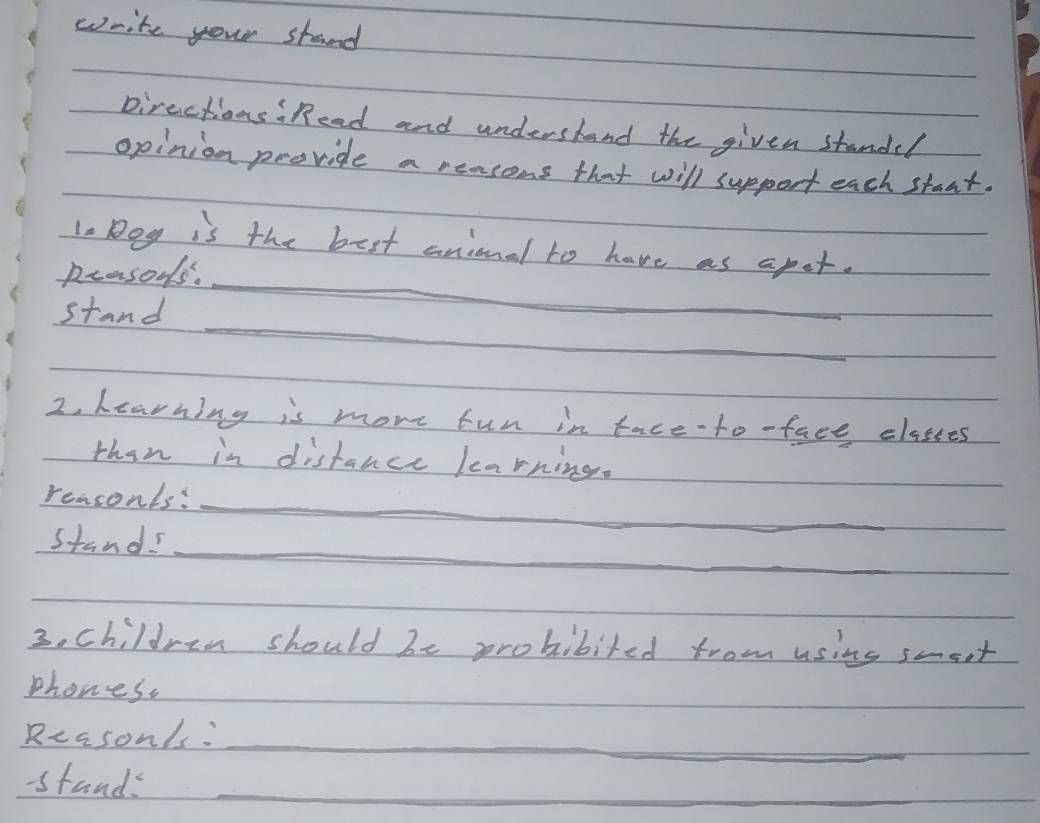 write your stand
Directions: Read and understand the given stands/
opinion provide a reasons that will support each stant.
1. Dog is the best animal to have as apet.
Reason/s:
stand
2. Learning is more fun in face-to-face classes
than in distance learning.
reason/s:
stand:
3. Children should be prohibited from using smart
phones.
Reason/s:
stand: